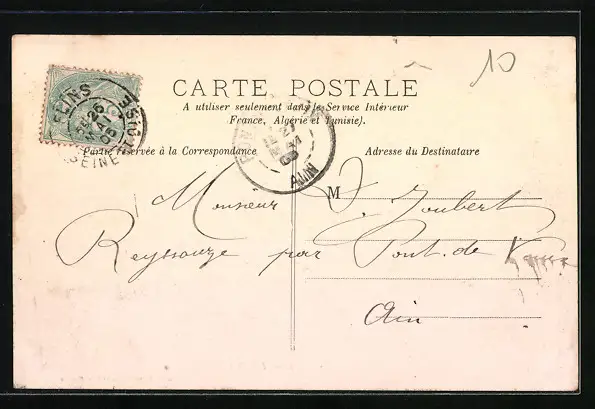 10
CARTE POSTALE
A utiliser seulement dans le Service Intérieur
France, Algérie et Tunisie).
Partie réservée à la Correspondance
Adresse du Destinataire
26
MAI
OISE
SEINE
27
AIN
M
Monsieur J. Joubert
Reyssouze par Pont. de Vaux
Ain